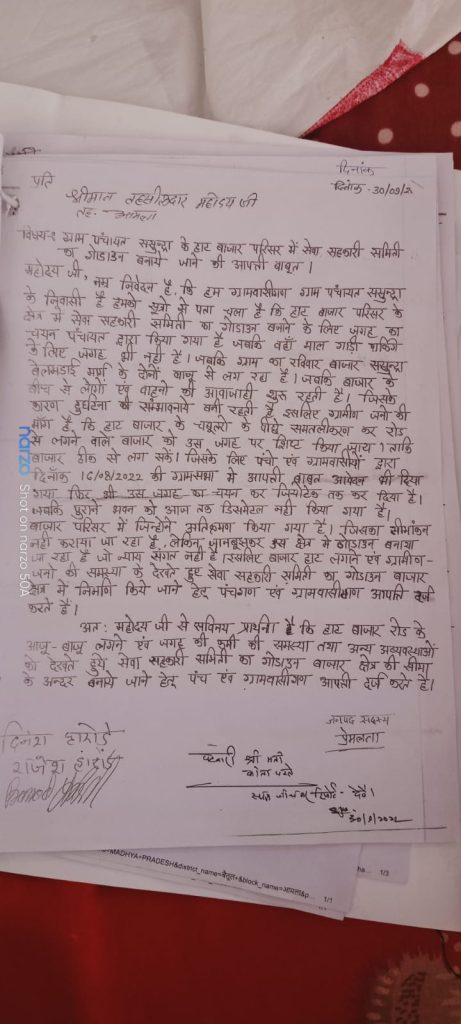 दिनांक
दिनांक - 30/09/2
प्रति
श्रीमान तहसीलदार महोदय जी
तह. आमला
विषय:- ग्राम पंचायत ससुन्द्रा के हाट बाजार परिसर में सेवा सहकारी समिति
का गोडाउन बनाये जाने की आपत्ती बाबत ।
महोदय जी,
नम्र निवेदन है, कि हम ग्रामवासीगण ग्राम पंचायत ससुन्द्रा
के निवासी है हमको सूत्रो से पता चला है कि हाट बाजार परिसर के
क्षेत्र में सेवा सहकारी समिति का गोडाउन बनाने के लिए जगह का
चयन पंचायत द्वारा किया गया है जबकि वहाँ माल गाडी पार्किंग
के लिए जगह भी नही है । जबकि ग्राम का रविवार बाजार ससुन्द्रा
बेलमडाई मार्ग के दोनों बाजू से लग रहा है । जबकि बाजार के
बीच से लोगों एवं वाहनो की आवाजाही शुरू रहती है । जिसके
कारण दुर्घटना की सम्भावनाये बनी रहती है इसलिए ग्रामीण जनो की
मांग है कि हाट बाजार के चबूतरो के पीछे समतलीकरण कर रोड
से लगने वाले बाजार को उस जगह पर शिफ्ट किया जाय । ताकि
बाजार ठीक से लग सके । जिसके लिए पंचो एवं ग्रामवासीयों द्वारा
दिनाँक 16/08/2022 की ग्रामसभा में आपत्ती बाबत आवेदन भी दिया
गया फिर भी उस जगह का चयन कर जियोटेक तक कर दिया है।
जबकि पुराने भवन को आज तक डिसमेटल नही किया गया है।
बाजार परिसर में जिन्होंने अतिक्रमण किया गया है। जिसका सीमांकन
नही कराया जा रहा है, लेकिन जानबूझकर उस क्षेत्र में गोडाउन बनाया
जा रहा है जो न्याय संगत नही है। इसलिए बाजार हाट लगाने एवं ग्रामीण-
जनो की समस्या के देखते हुए सेवा सहकारी समिति का गोडाउन बाजार
क्षेत्र में निर्माण किये जाने हेतु पंचगण एवं ग्रामवासीगण आपत्ती दर्ज
करते है।
अतः महोदय जी से सविनय प्रार्थना है कि हाट बाजार रोड के
आजू-बाजू लगने एवं जगह की कमी की समस्या तथा अन्य अव्यवस्थाओं
को देखते हुये सेवा सहकारी समिति का गोडाउन बाजार क्षेत्र की सीमा
के अन्दर बनाये जाने हेतु पंच एवं ग्रामवासीगण आपत्ती दर्ज करते है।
जनपद सदस्य
प्रेमलता
दिनेश हारोडे
राजेश
पटवारी श्री मती
स्थल जाँच कर रिपोर्ट - देवें।
30/9/2022
MADHYA+PRADESH&district_name=बैतूल&block_name=आमला&p... 1/1
ha... 1/3
narzo
Shot on narzo 50A